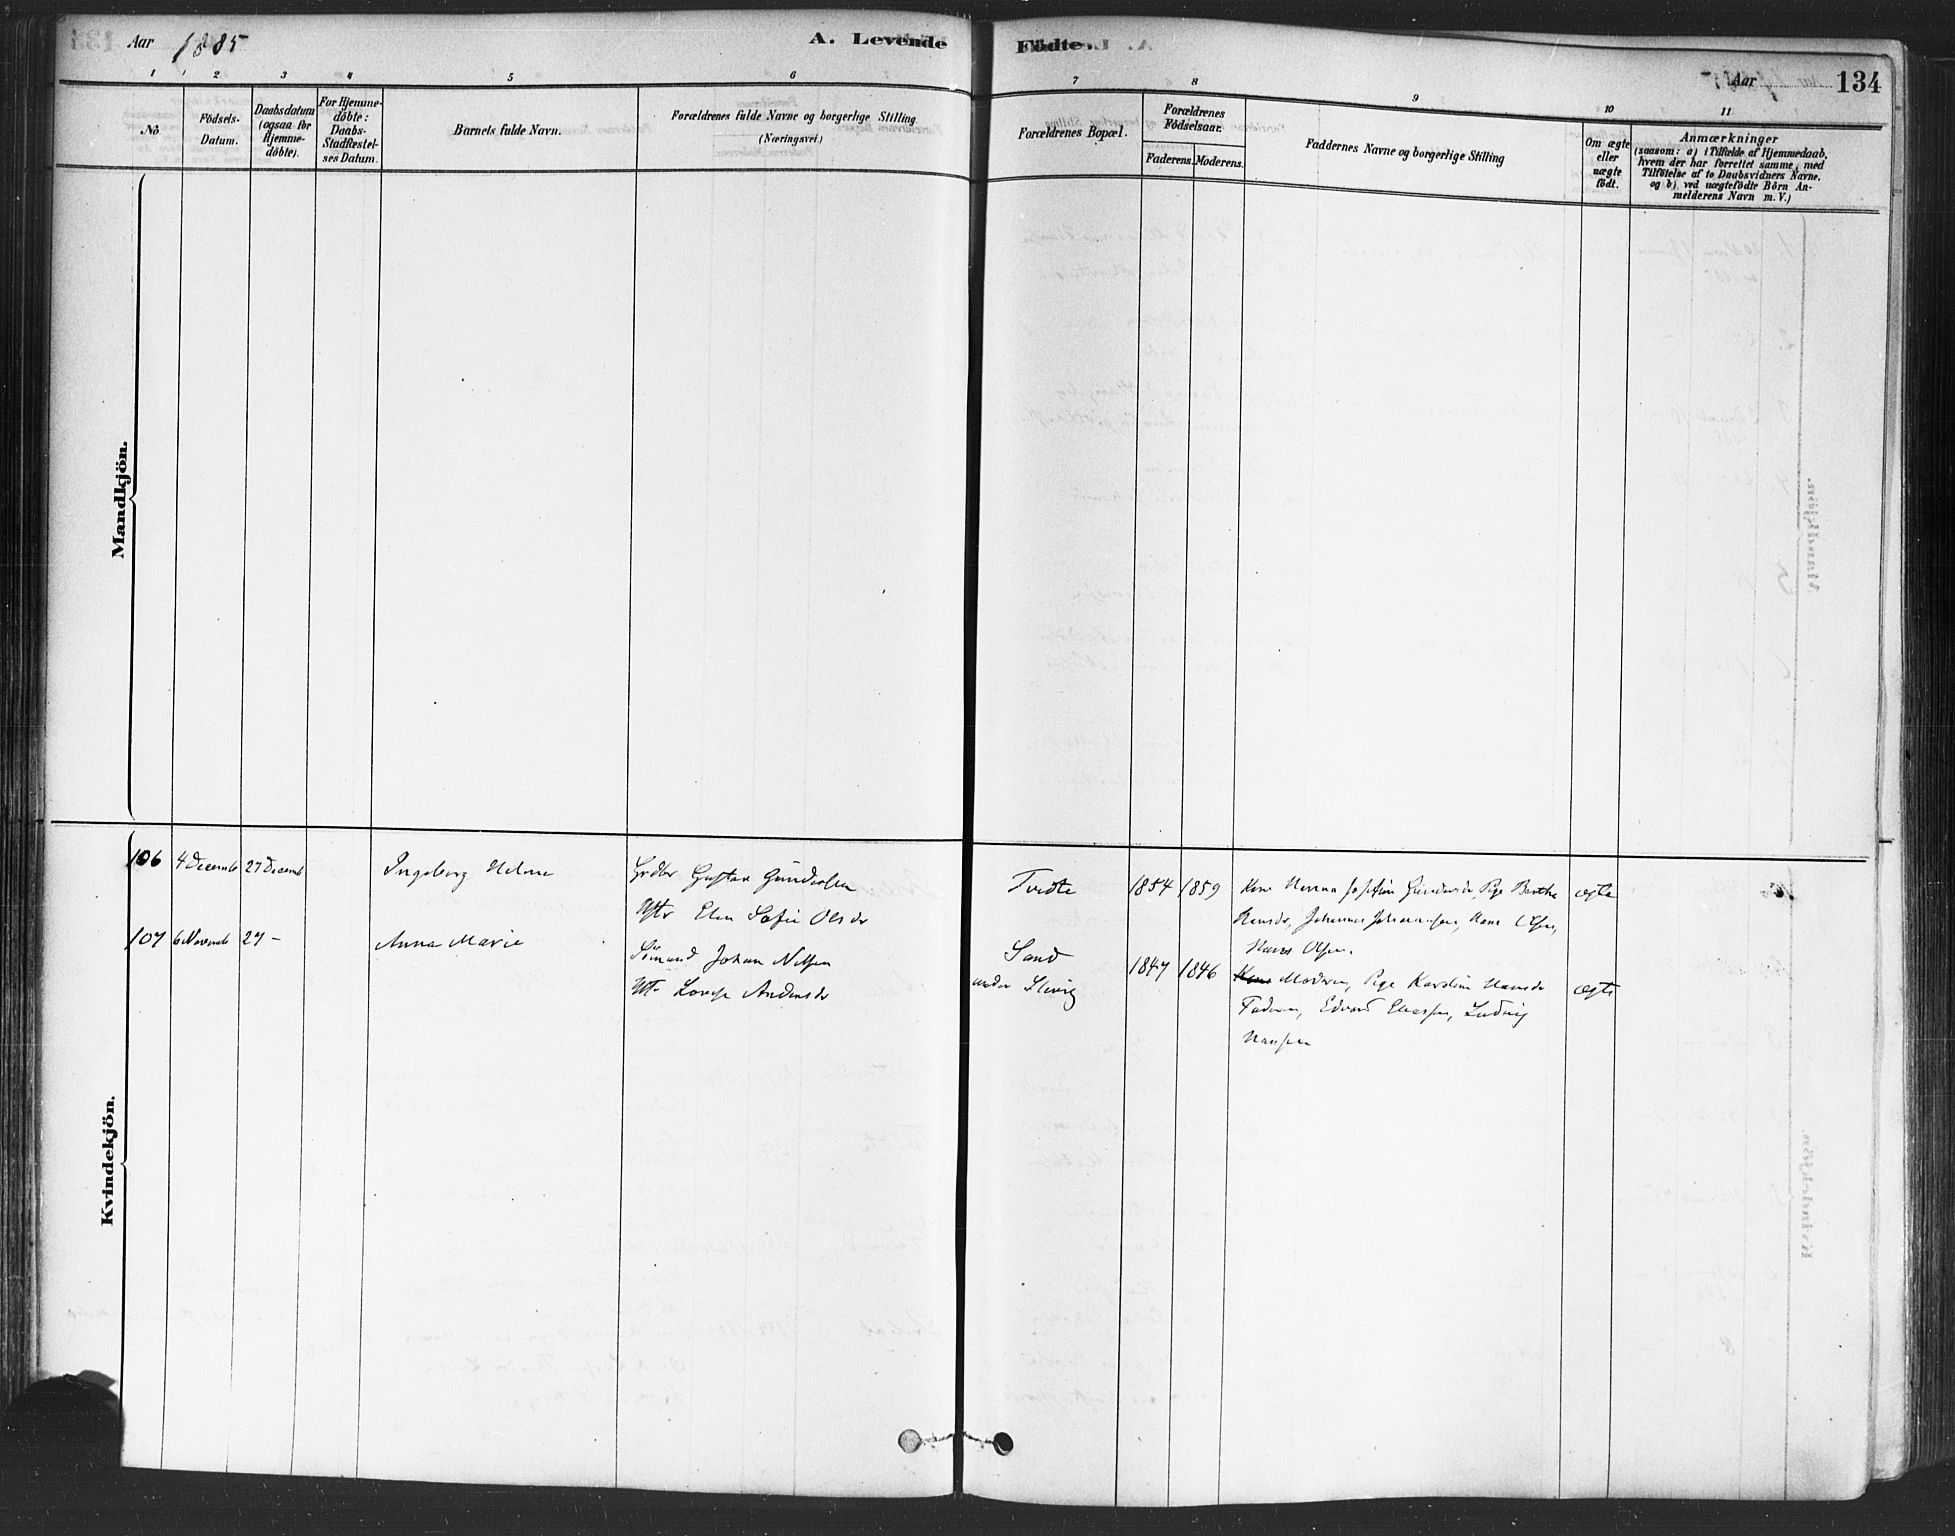 Aar 1885
A. Levende
Födte.
Aar
134
1 2 3 4 5 6 7 8 9 10 11
No
Födsels-
Datum.
Daabsdatum
(ogsaa for
Hjemme-
döbte).
For Hjemme-
döbte:
Daabs-
Stadfæstel-
ses Datum.
Barnets fulde Navn.
Forældrenes fulde Navne og borgerlige Stilling
(Næringsvei.)
Forældrenes Bopæl.
Forældrenes
Födselsaar.
Faderens. Moderens.
Faddernes Navne og borgerlige Stilling
Om ægte
eller
uægte
födt.
Anmærkninger
(saasom: a) i Tilfælde af Hjemmedaab,
hvem der har forrettet samme, med
Tilföielse af to Daabsvidners Navne.
og b) ved uægtefödte Börn An-
melderens Navn m. V.)
Mandkjön.
Kvindekjön.
106 4 Decemb 27 Decemb Ingeborg Helene
Gustav Gundersen
Elen Sofie Olsdr
Tvedte 1854 1859
Kone Hanna Josefine Gundersdr, Pige Berthe
Hansdr, Johannes Johannessen, Hans Olsen,
Hans Olsen.
ægte
107 6 Novemb 27 - Anna Marie
Sömand Johan Nilsen
Lovise Andersdr
Sand
under
1847 1846
Moderen, Pige Karoline Hansdr
Faderen, Edvard Eliassen, Ludvig
Hansen
ægte